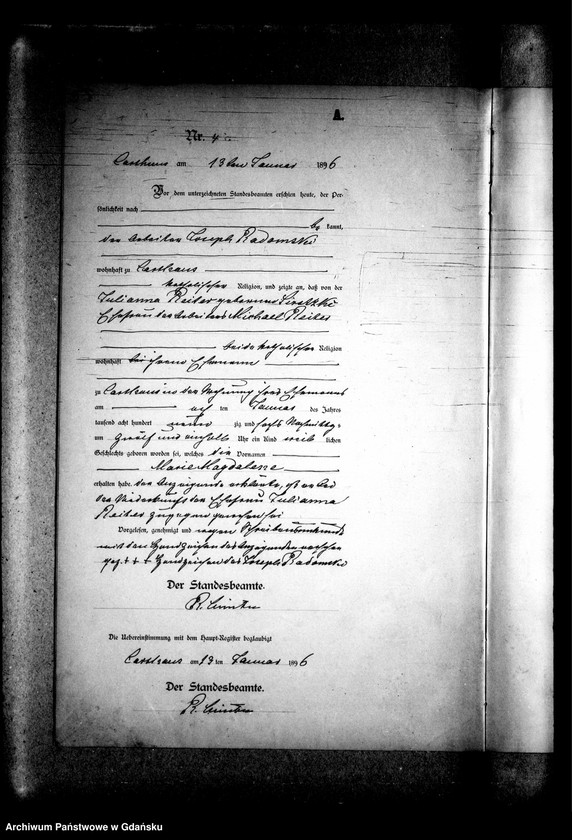 A.
Nr. 4
Carthaus am 13ten Januar 1896
Vor dem unterzeichneten Standesbeamten erschien heute, der Per-
sönlichkeit nach
be kannt,
der Arbeiter Joseph Radomski
wohnhaft zu Carthaus
katholischer Religion, und zeigte an, daß von der
Julianna Reiter geborene
Ehefrau des Arbeiters Michael Reiter
beide katholischer Religion
wohnhaft bei ihrem Ehemann
zu Carthaus in der Wohnung ihres Ehemanns
am acht ten Januar des Jahres
tausend acht hundert neun zig und sechs Nachmittag s
um zwölf und einhalb Uhr ein Kind weib lichen
Geschlechts geboren worden sei, welches die Vornamen
Marie Magdalene
erhalten habe. Der Anzeigende erklärte, daß er bei
der Niederkunft der Ehefrau Julianna
Reiter zugegen gewesen sei
Vorgelesen, genehmigt und wegen Schreibensunkunde
mit den Handzeichen des Anzeigenden versehen
gez. + + + Handzeichen des Joseph Radomski
Der Standesbeamte.
Die Uebereinstimmung mit dem Haupt-Register beglaubigt
Carthaus am 13 ten Januar 1896
Der Standesbeamte.
Archiwum Państwowe w Gdańsku